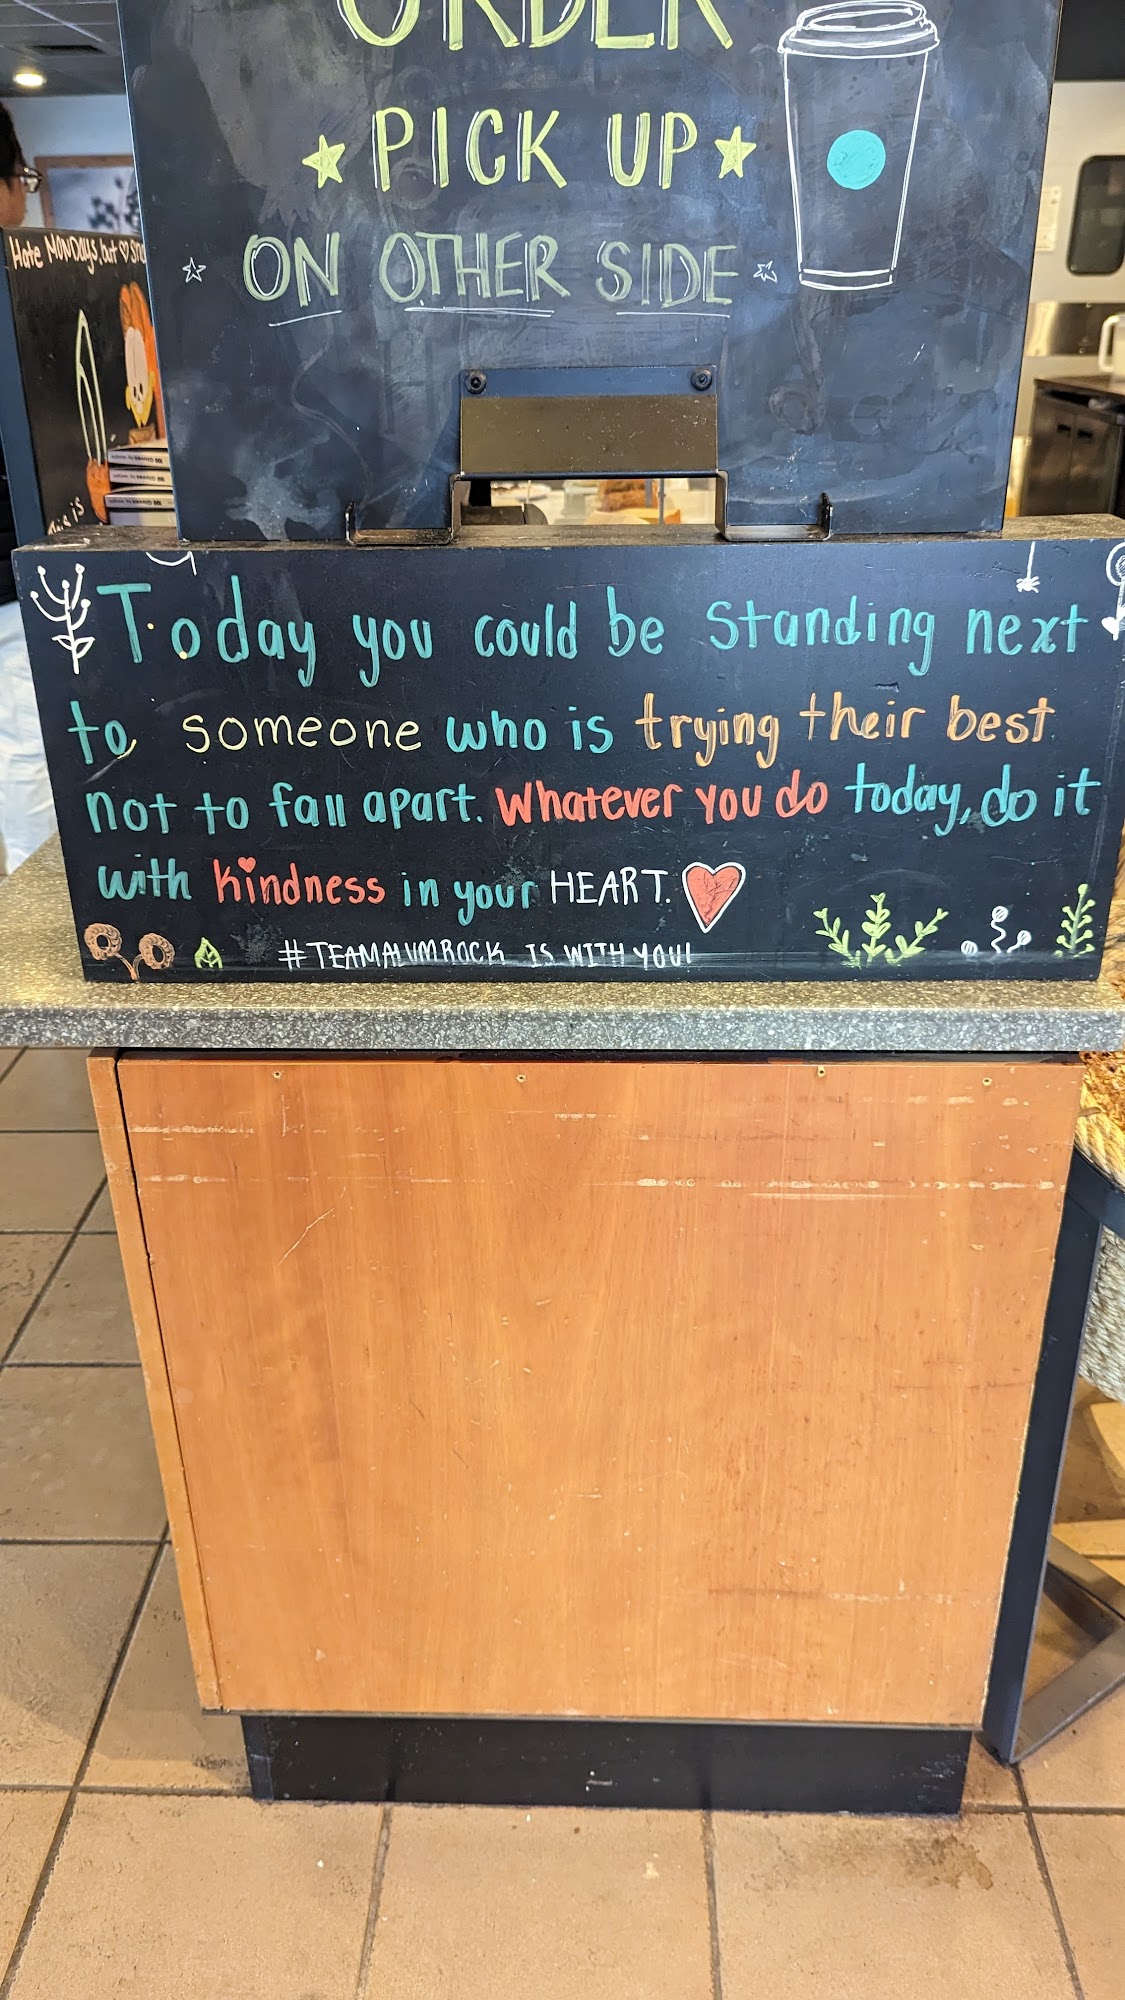 ORDER
PICK UP
ON OTHER SIDE
Hate MONDAYS, but
This is
Today you could be standing next
to someone who is trying their best
not to fall apart. Whatever you do today, do it
with kindness in your HEART.
#TEAMALUMROCK IS WITH YOU!